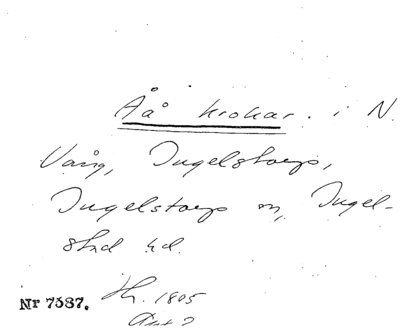 Åå krokar. i N.
Vång, Ingelstorp,
Ingelstorp sn, Ingel-
stad hd.
Nr 7587. Hh. 1805